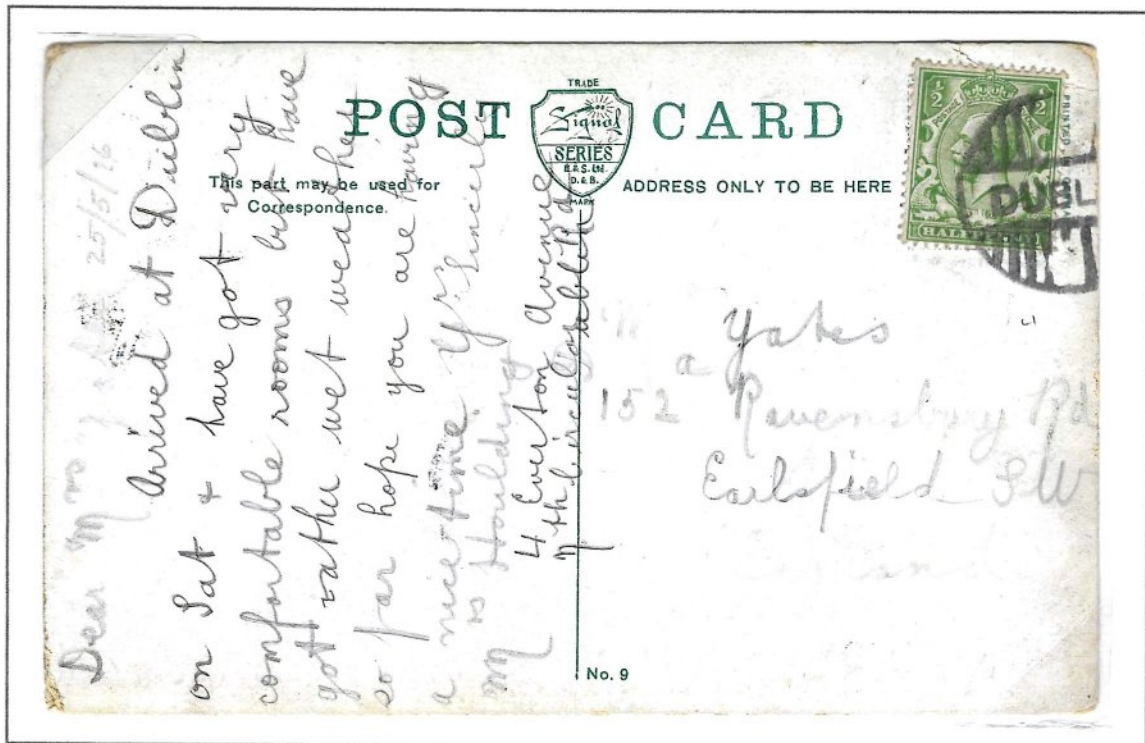 POST CARD
TRADE
Signal
SERIES
E. & S. Ltd.
D. & B.
MARK
This part may be used for
Correspondence.
ADDRESS ONLY TO BE HERE
½ ½
POSTAGE
HALFPENNY
DUBL
25/5/16
Dear Mrs
Arrived at Dublin
on Sat + have got very
comfortable rooms but have
got rather wet weather
so far hope you are having
a nice time Yrs Sincerely
M Houlding
4 Everton Avenue
Nth Circular Rd
Yates
152 Ravensbury Rd
Earlsfield SW
No. 9